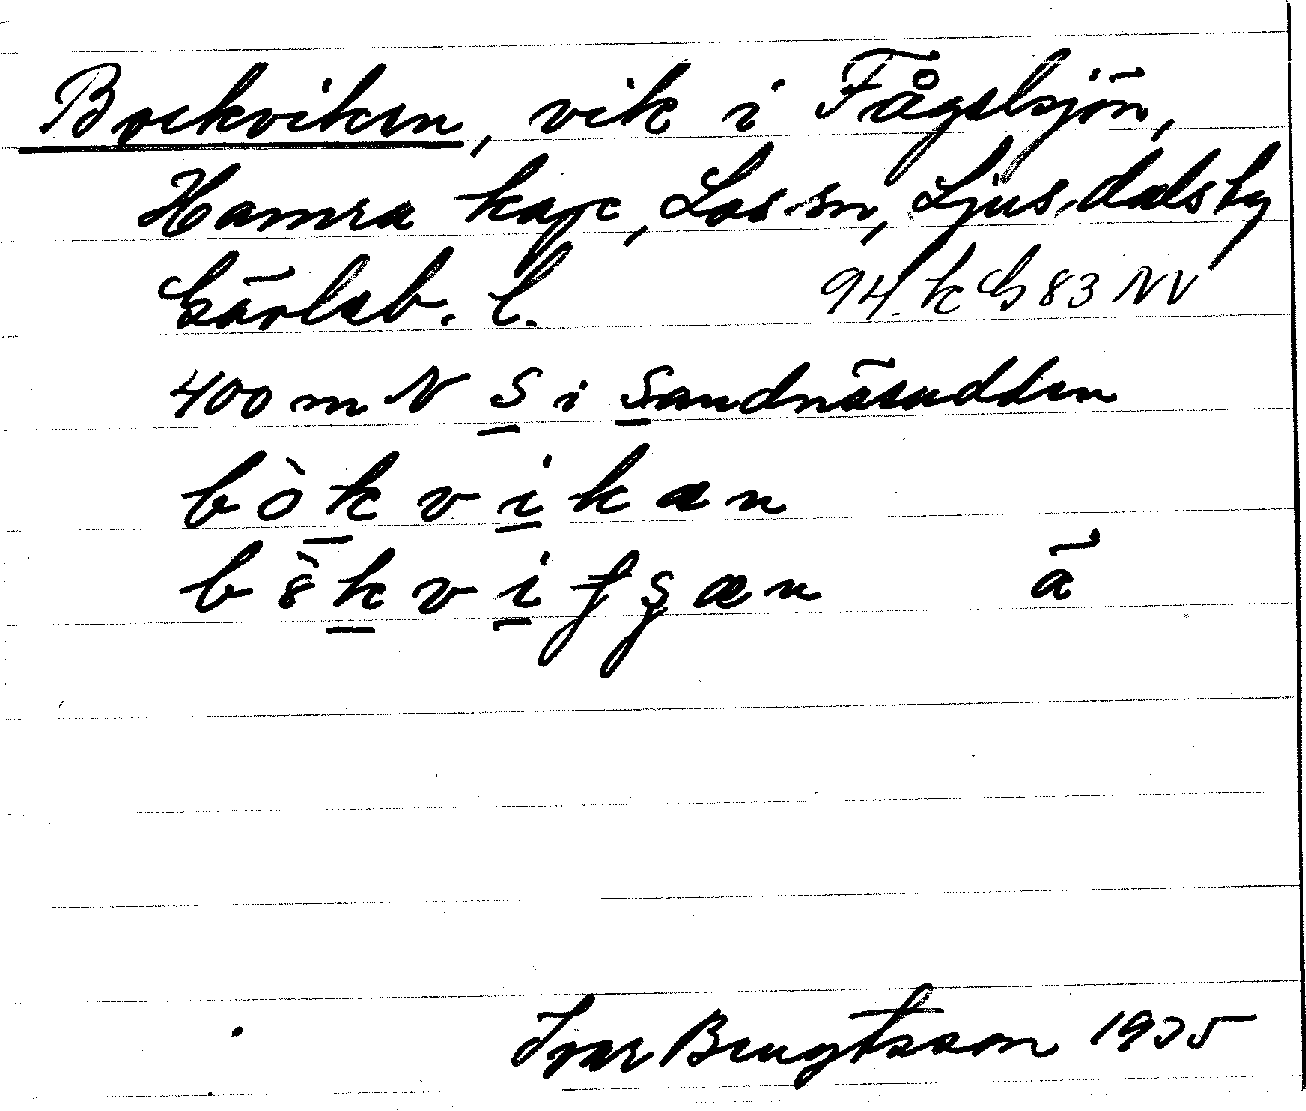 Bockviken, vik i Fågelsjön,
Hamra kap, Los sn, Ljusdals tg
Gävleb. l. 94 k G 83 NV
400 m N S i Sandnäsudden
bòkvikan
vifşæn ä
Ivar Bengtsson 1935